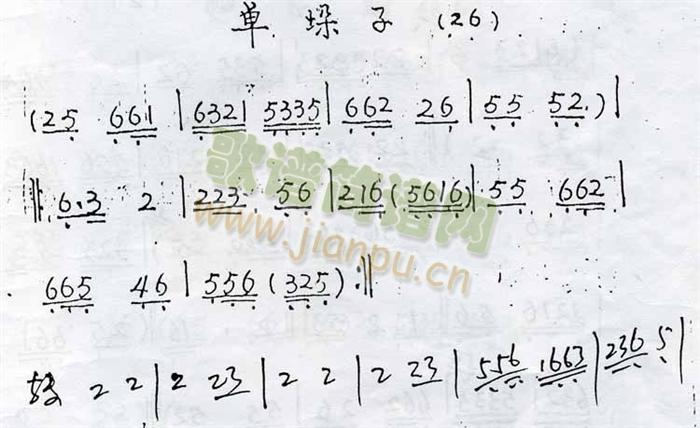 单垛子 (26)
(25 661 | 6321 5335 | 662 26 | 55 52.) |
‖: 6.3 2 | 223 56 | 216 (5616) | 55 662 |
665 46 | 556 (325) :‖
2 2 | 2 23 | 2 2 | 2 23 | 556 1663 | 236 5 |
歌谱简谱网
www.jianpu.cn